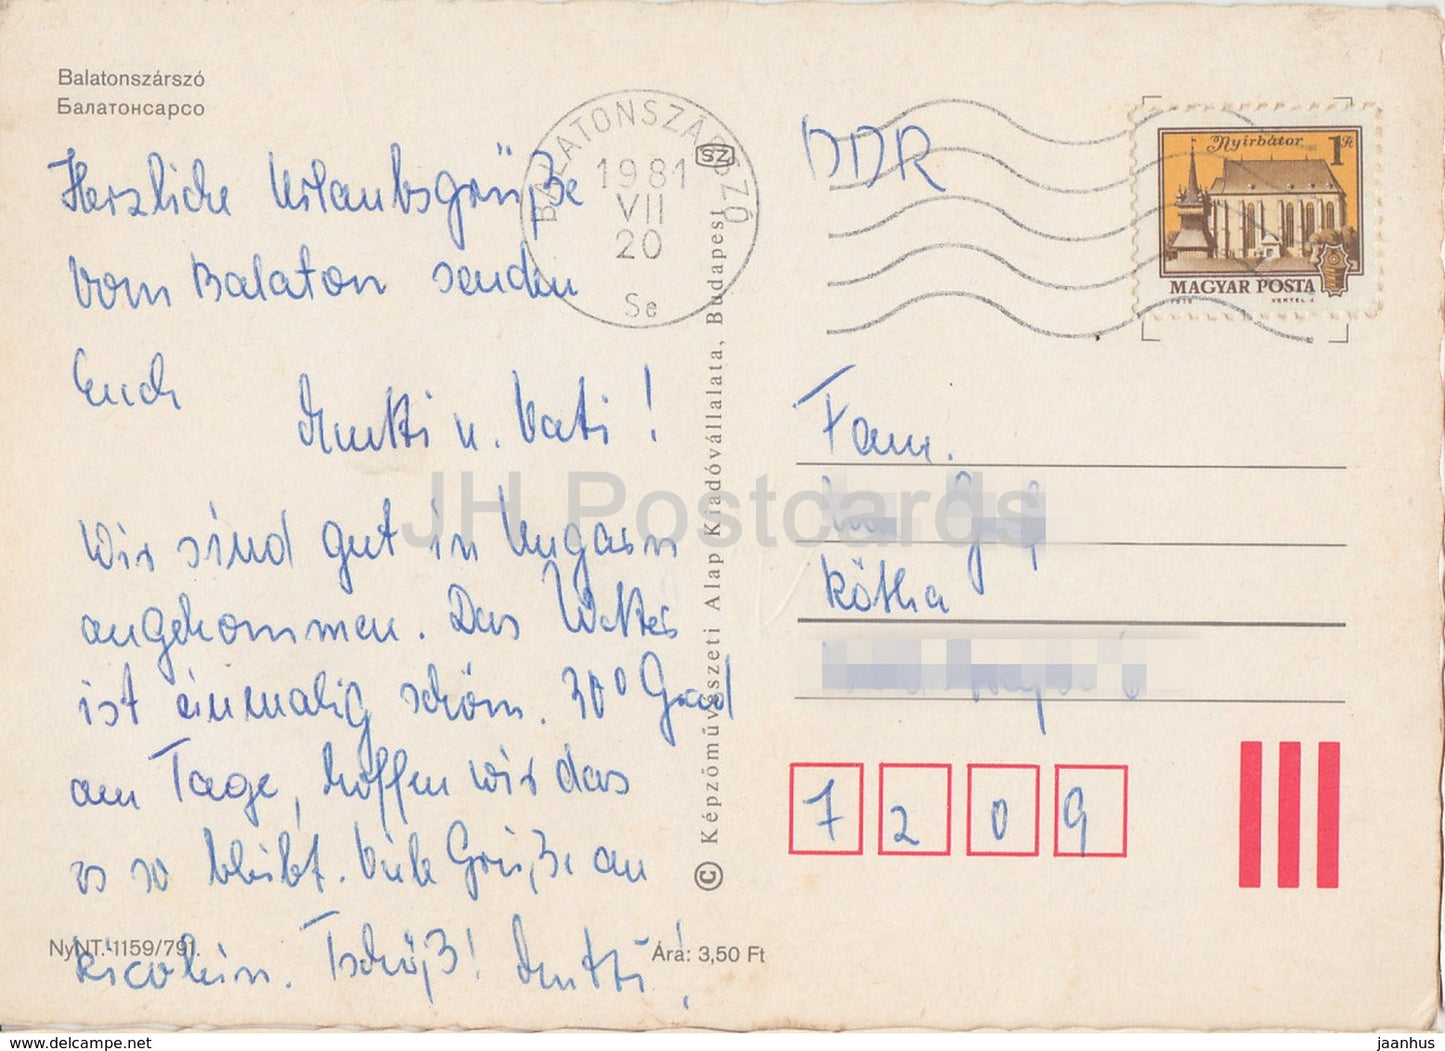 Balatonszárszó
Балатонсарсо
Herzliche Urlaubsgrüße
vom Balaton senden
Euch
Mutti u. Vati!
Wir sind gut in Ungarn
angekommen. Das Wetter
ist einmalig schön. 30° Grad
am Tage, hoffen wir das
es so bleibt. Viele Grüße an
Nicolein. Tschüß! Mutti!
NyNT.-1159/791.
Ára: 3,50 Ft
© Képzőművészeti Alap Kiadóvállalata, Budapest
BALATONSZÁRSZÓ
SZ
1981
VII
20
Se
DDR
Nyírbátor
1 Ft
MAGYAR POSTA
1979
VERTEL J.
Fam.
Rötha
7209
JH Postcards
delcampe.net
jaanhus